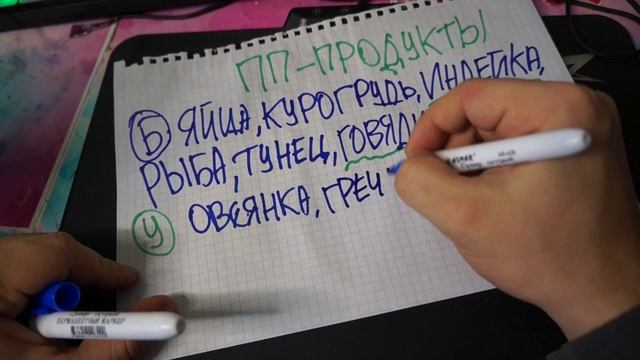 ПП-ПРОДУКТЫ
Б ЯЙЦА, КУРОГРУДЬ, ИНДЕЙКА,
РЫБА, ТУНЕЦ, ГОВЯД
У ОВСЯНКА, ГРЕЧ
ПЕРМАНЕНТНЫЙ МАРКЕР